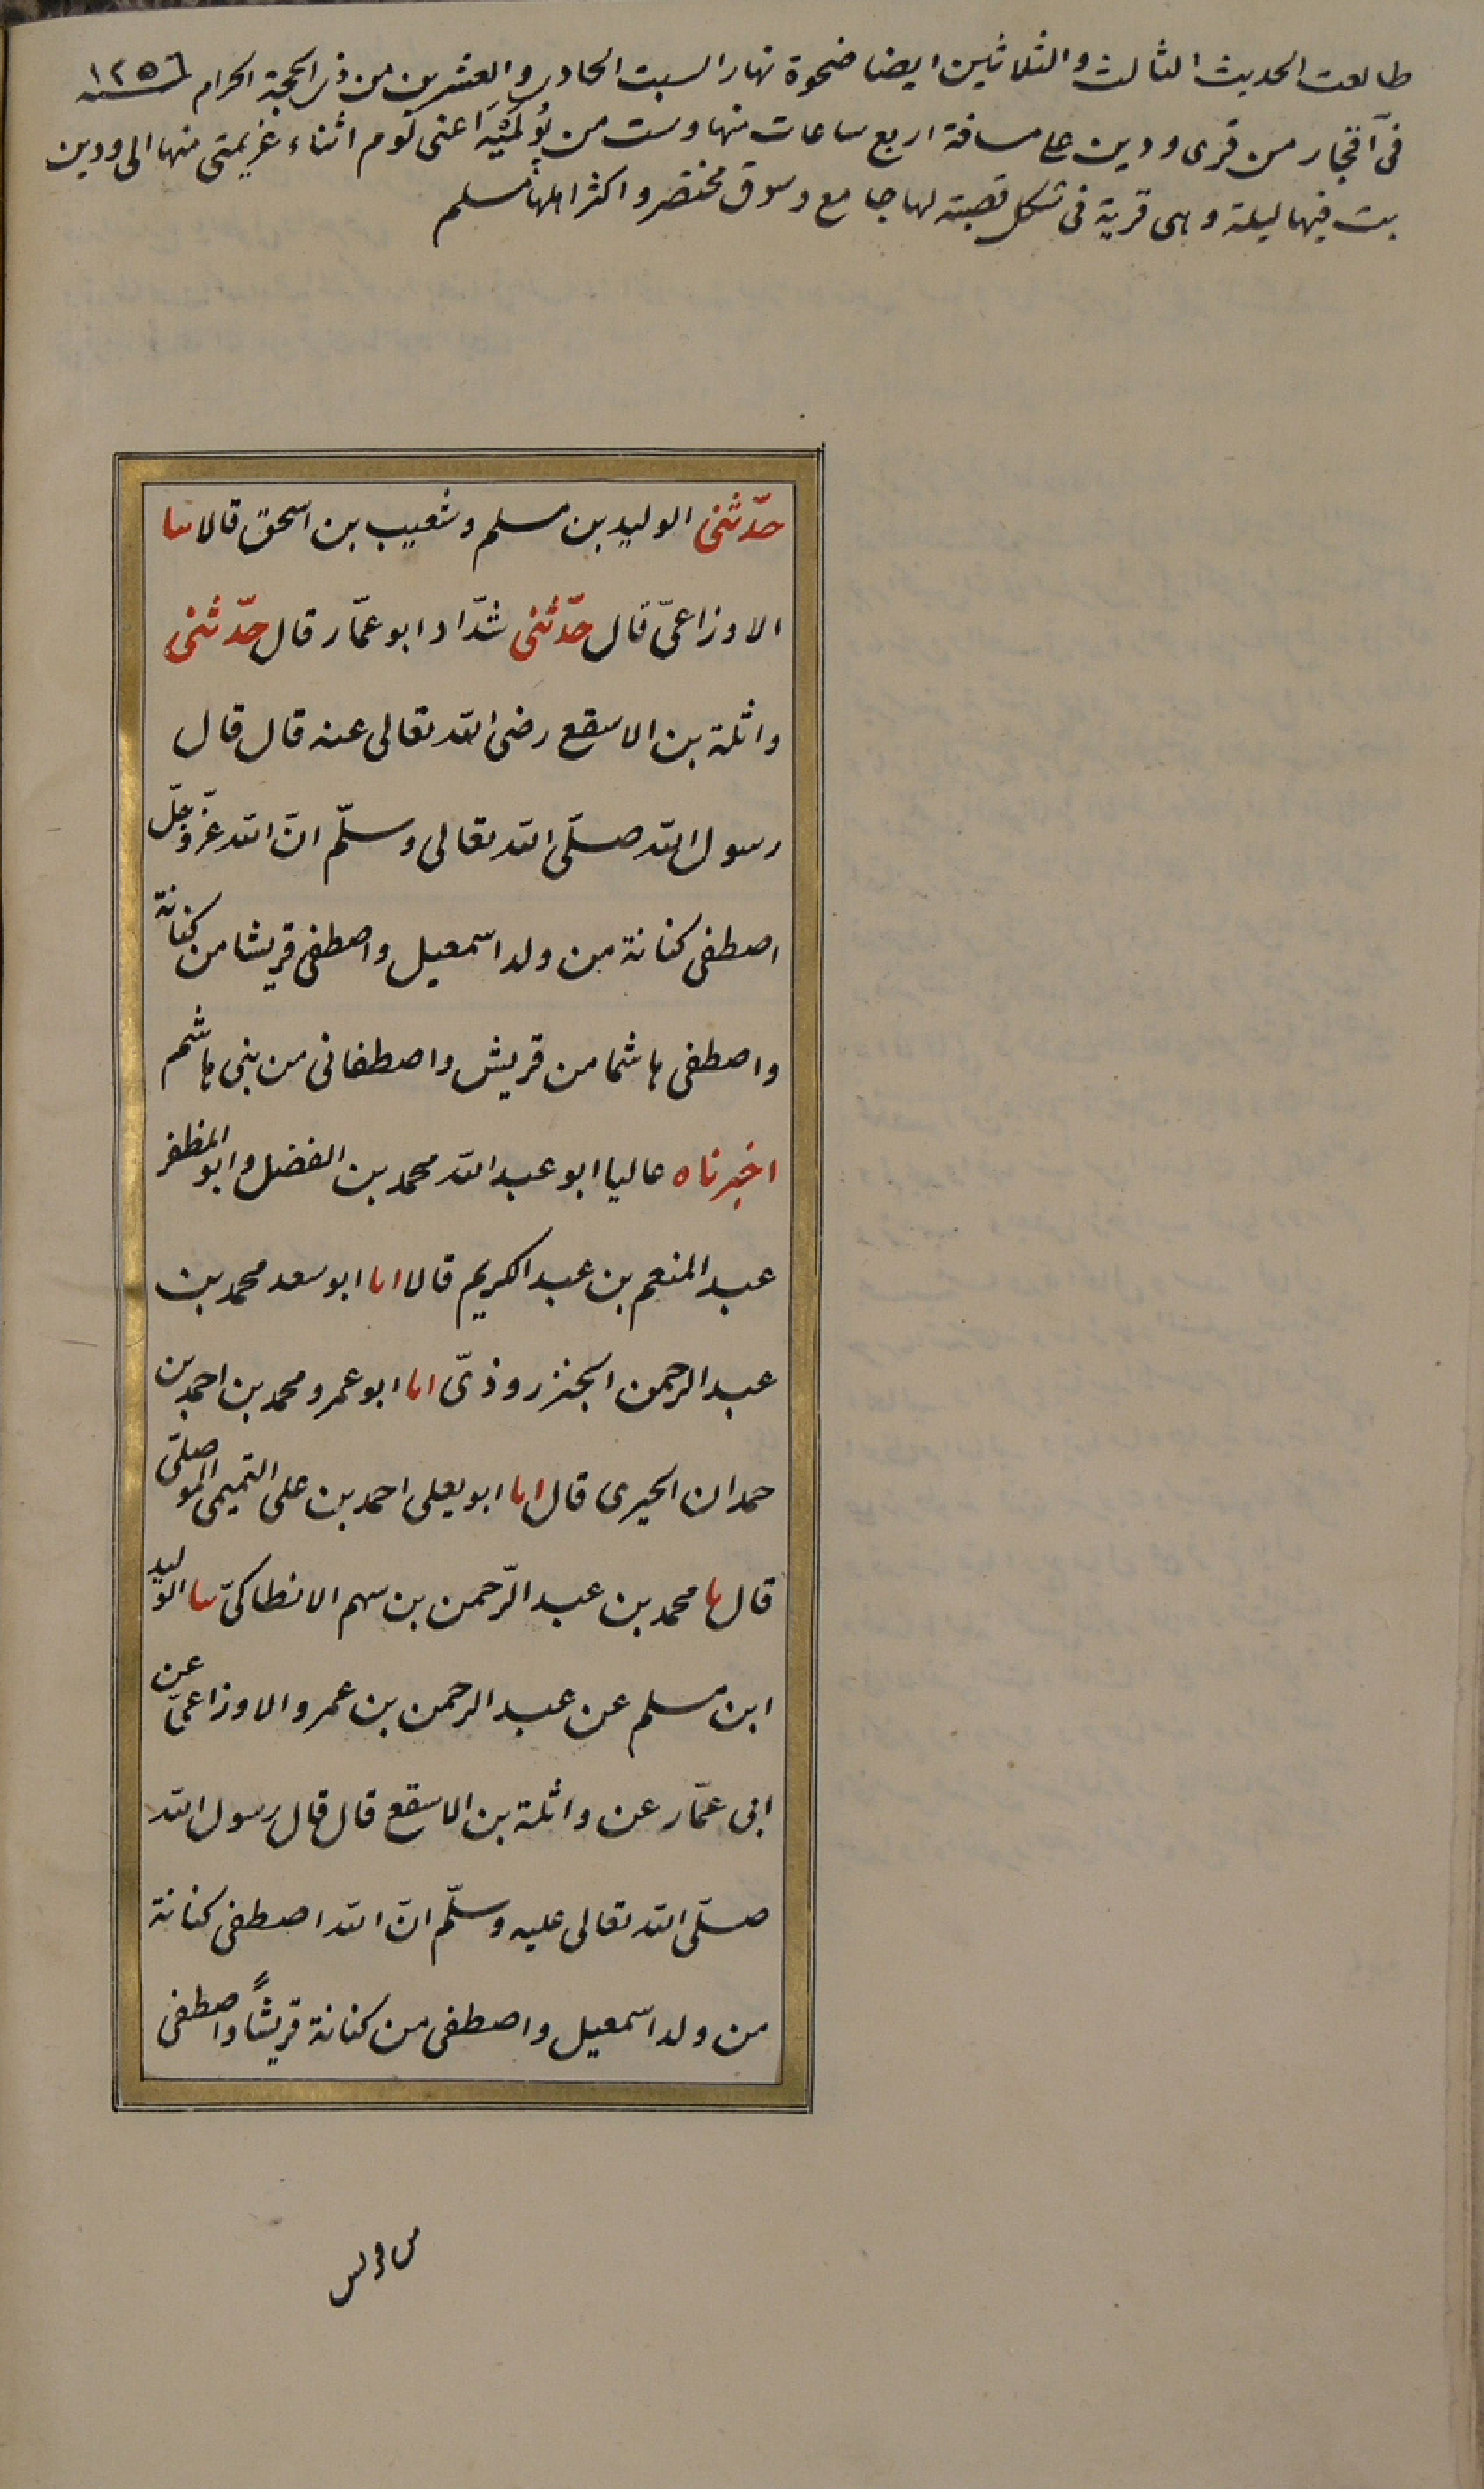 طالعت الحديث الثالث والثلاثين ايضا ضحوة نهار السبت الحادى والعشرين من ذى الحجة الحرام سنة ١٢٥٦
فى آقجار من قرى ودين على مسافة اربع ساعات منها وست من اعنى لوم اثناء عزيمتى منها الى ودين
بت فيها ليلة وهى قرية فى شكل قصبة لها جامع وسوق مختصر واكثر اهلها مسلم
حدّثنى الوليد بن مسلم وشعيب بن اسحق قالا ثنا
الاوزاعىّ قال حدّثنى شدّاد ابو عمّار قال حدّثنى
واثلة بن الاسقع رضى الله تعالى عنه قال قال
رسول الله صلّى الله تعالى وسلّم انّ الله عزّ وجلّ
اصطفى كنانة من ولد اسمعيل واصطفى قريشا من كنانة
واصطفى هاشما من قريش واصطفانى من بنى هاشم
اخبرناه عاليا ابو عبد الله محمد بن الفضل وابو المظفر
عبد المنعم بن عبد الكريم قالا انا ابو سعد محمد بن
عبد الرحمن الجنزروذىّ انا ابو عمرو محمد بن احمد بن
حمدان الحيرى قال انا ابو يعلى احمد بن على التميمى الموصلىّ
قال نا محمد بن عبد الرّحمن بن سهم الانطاكىّ ثنا الوليد
ابن مسلم عن عبد الرحمن بن عمرو الاوزاعىّ عن
ابى عمّار عن واثلة بن الاسقع قال قال رسول الله
صلّى الله تعالى عليه وسلّم انّ الله اصطفى كنانة
من ولد اسمعيل واصطفى من كنانة قريشاً واصطفى